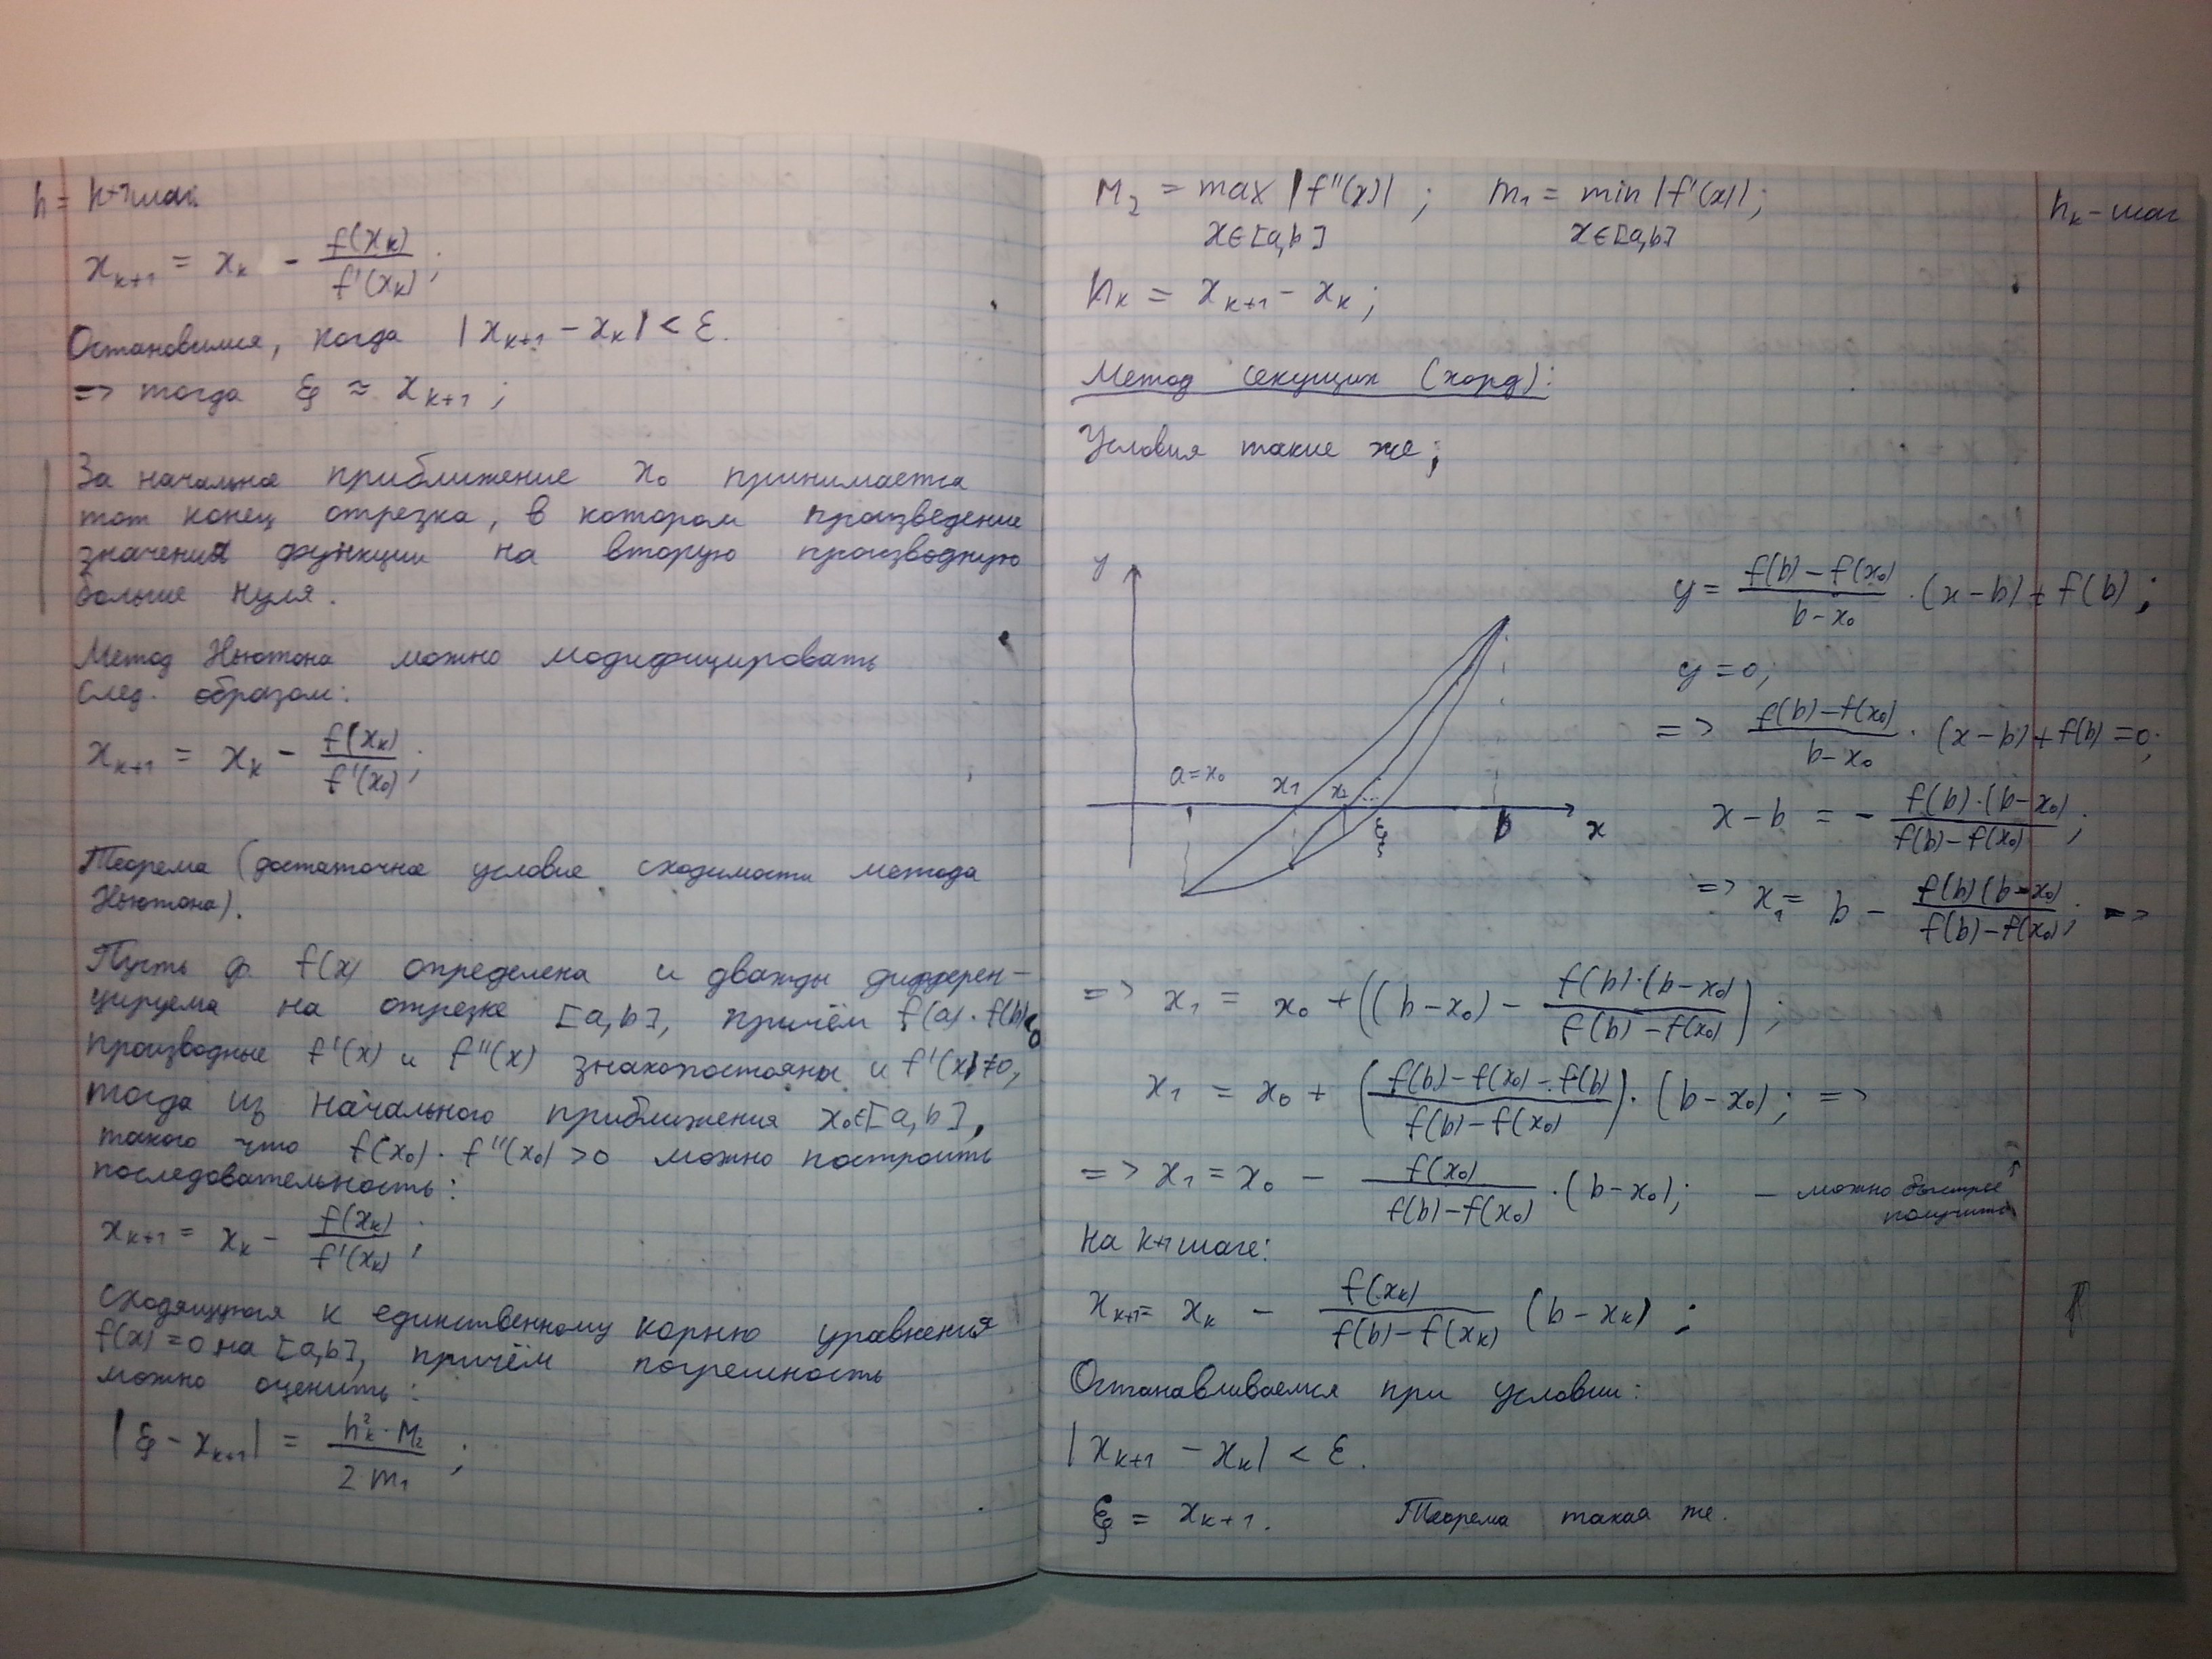 h = k+1 шаг.
x_{k+1} = x_k - f(x_k)/f'(x_k);
Остановимся, когда |x_{k+1} - x_k| < ε.
=> тогда ξ ≈ x_{k+1};
За начальное приближение x₀ принимается
тот конец отрезка, в котором произведение
значения функции на вторую производную
больше нуля.
Метод Ньютона можно модифицировать
след. образом:
x_{k+1} = x_k - f(x_k)/f'(x₀);
Теорема (достаточное условие сходимости метода
Ньютона).
Пусть ф. f(x) определена и дважды дифферен-
цируема на отрезке [a,b], причём f(a)·f(b)<0
производные f'(x) и f''(x) знакопостояны и f'(x)≠0,
тогда из начального приближения x₀∈[a,b],
такого что f(x₀)·f''(x₀)>0 можно построить
последовательность:
x_{k+1} = x_k - f(x_k)/f'(x_k);
сходящуюся к единственному корню уравнения
f(x)=0 на [a,b], причём погрешность
можно оценить:
|ξ - x_{k+1}| = h_k²·M₂/2m₁;
M₂ = max |f''(x)|; m₁ = min |f'(x)|; h_k - шаг
x∈[a,b] x∈[a,b]
h_k = x_{k+1} - x_k;
Метод секущих (хорд):
Условия такие же;
y
a=x₀ x₁ x₂ ... ξ b x
y = (f(b)-f(x₀))/(b-x₀) · (x-b) + f(b);
y = 0;
=> (f(b)-f(x₀))/(b-x₀) · (x-b) + f(b) = 0;
x-b = - f(b)·(b-x₀)/(f(b)-f(x₀));
=> x₁ = b - f(b)(b-x₀)/(f(b)-f(x₀)); =>
=> x₁ = x₀ + ((b-x₀) - f(b)·(b-x₀)/(f(b)-f(x₀)));
x₁ = x₀ + ((f(b)-f(x₀)-f(b))/(f(b)-f(x₀))) · (b-x₀); =>
=> x₁ = x₀ - f(x₀)/(f(b)-f(x₀)) · (b-x₀); - можно быстрее
получить
На k+1 шаге:
x_{k+1} = x_k - f(x_k)/(f(b)-f(x_k)) (b-x_k);
Останавливаемся при условии:
|x_{k+1} - x_k| < ε.
ξ = x_{k+1}. Теорема такая же.